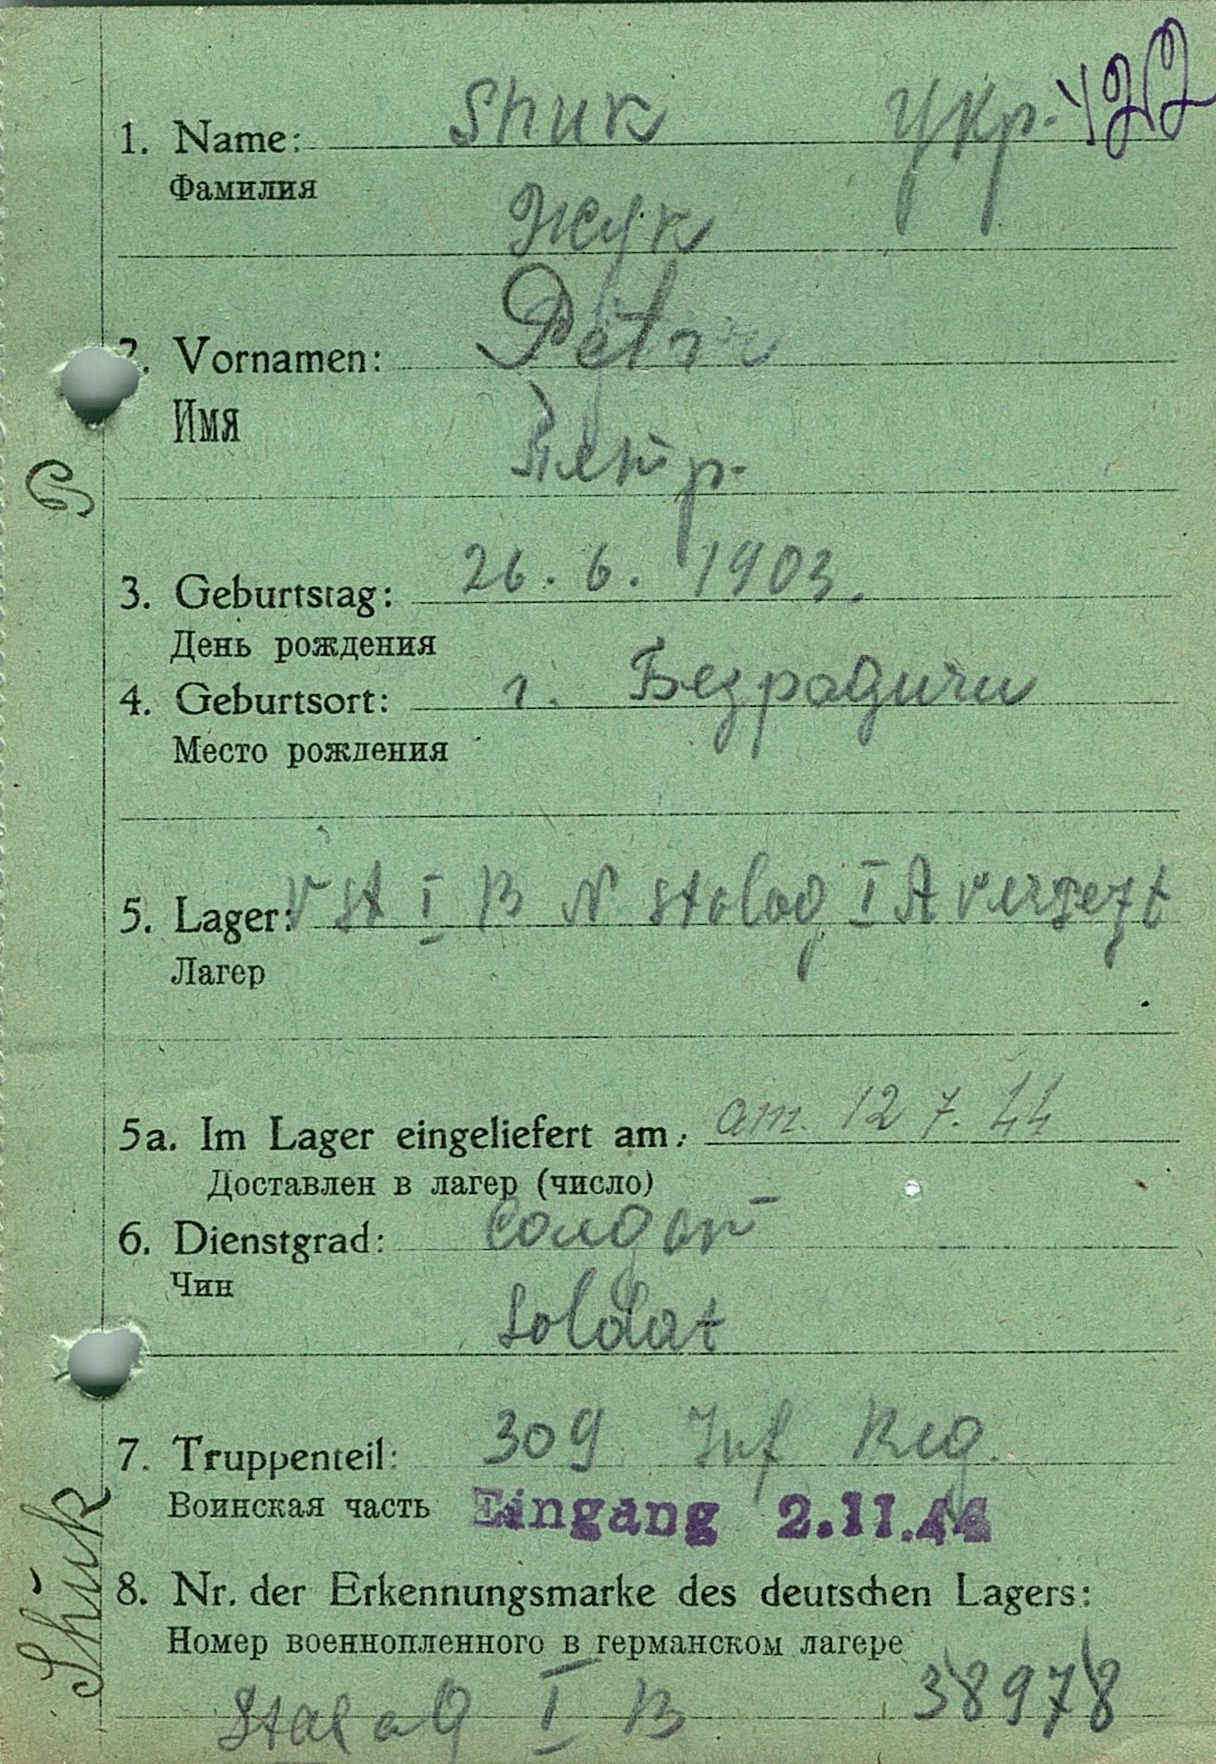 1. Name: Shuk Укр. 422
Фамилия
Жук
2. Vornamen: Petr
Имя
Петр.
3. Geburtstag: 26. 6. 1903.
День рождения
4. Geburtsort: г. Безрадичи
Место рождения
5. Lager: V St I B N. Stalag I A versezt
Лагер
5a. Im Lager eingeliefert am: am. 12 7. 44
Доставлен в лагер (число)
6. Dienstgrad: Солдат
Чин
Soldat
7. Truppenteil: 309 Inf Reg.
Воинская часть Eingang 2.11.44
8. Nr. der Erkennungsmarke des deutschen Lagers:
Номер военнопленного в германском лагере
Stalag I B 38978
Shuk